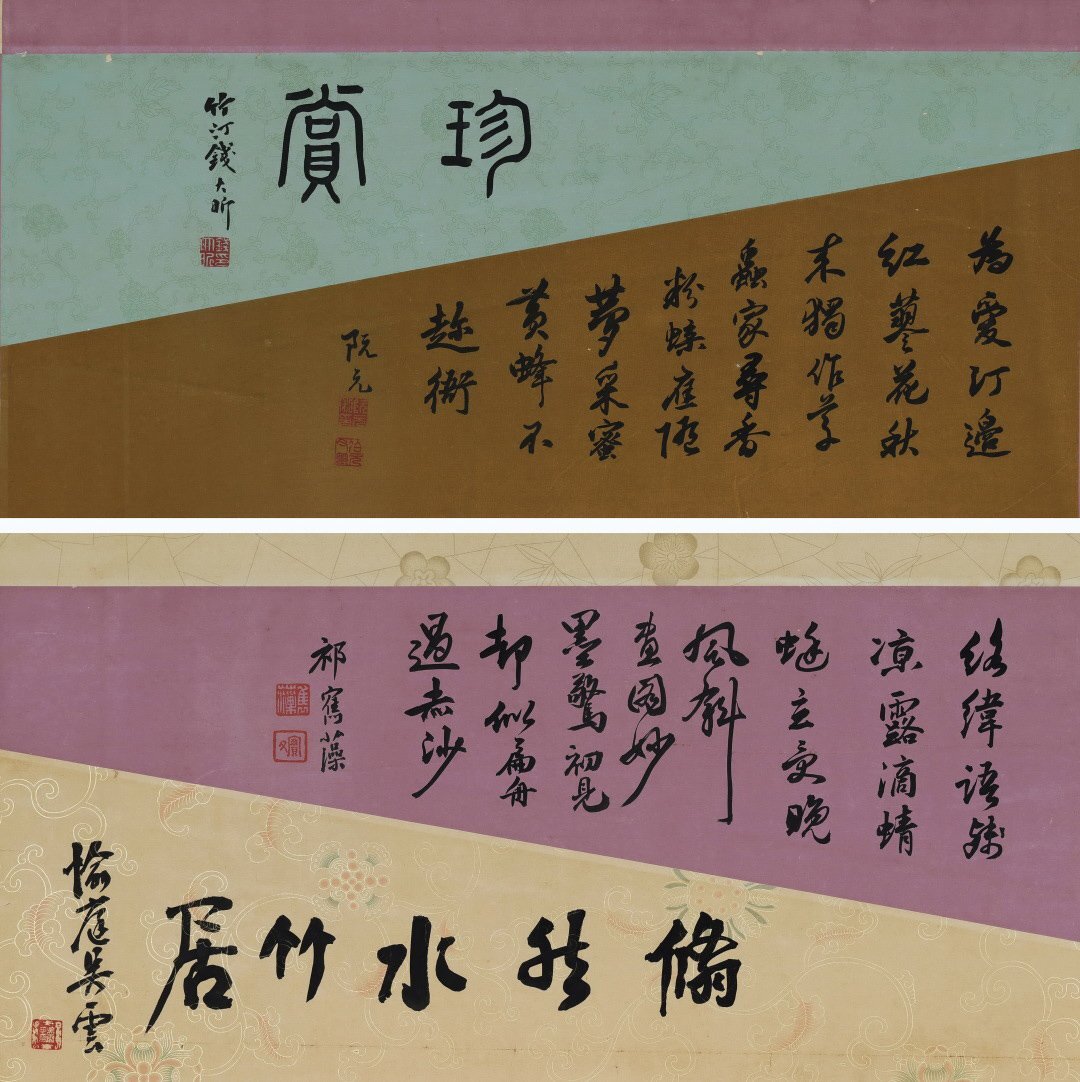 珍賞
竹汀錢大昕
為愛汀邊
紅蓼花秋
來獨作草
蟲家尋香
粉蝶應隨
夢采蜜
黃蜂不
趁衙
阮元
絡緯語殘
凉露滴蜻
蜓立受晚
風斜
畫圖妙
墨驚初見
却似扁舟
過赤沙
祁寯藻
翛然水竹居
愉庭吳雲